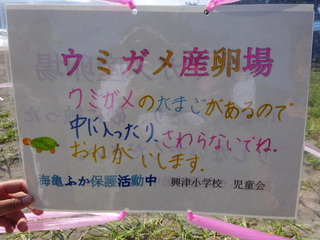 ウミガメ産卵場
ウミガメのたまごがあるので
中に入ったり、さわらないでね。
おねがいします。
海亀ふか保護活動中 興津小学校 児童会